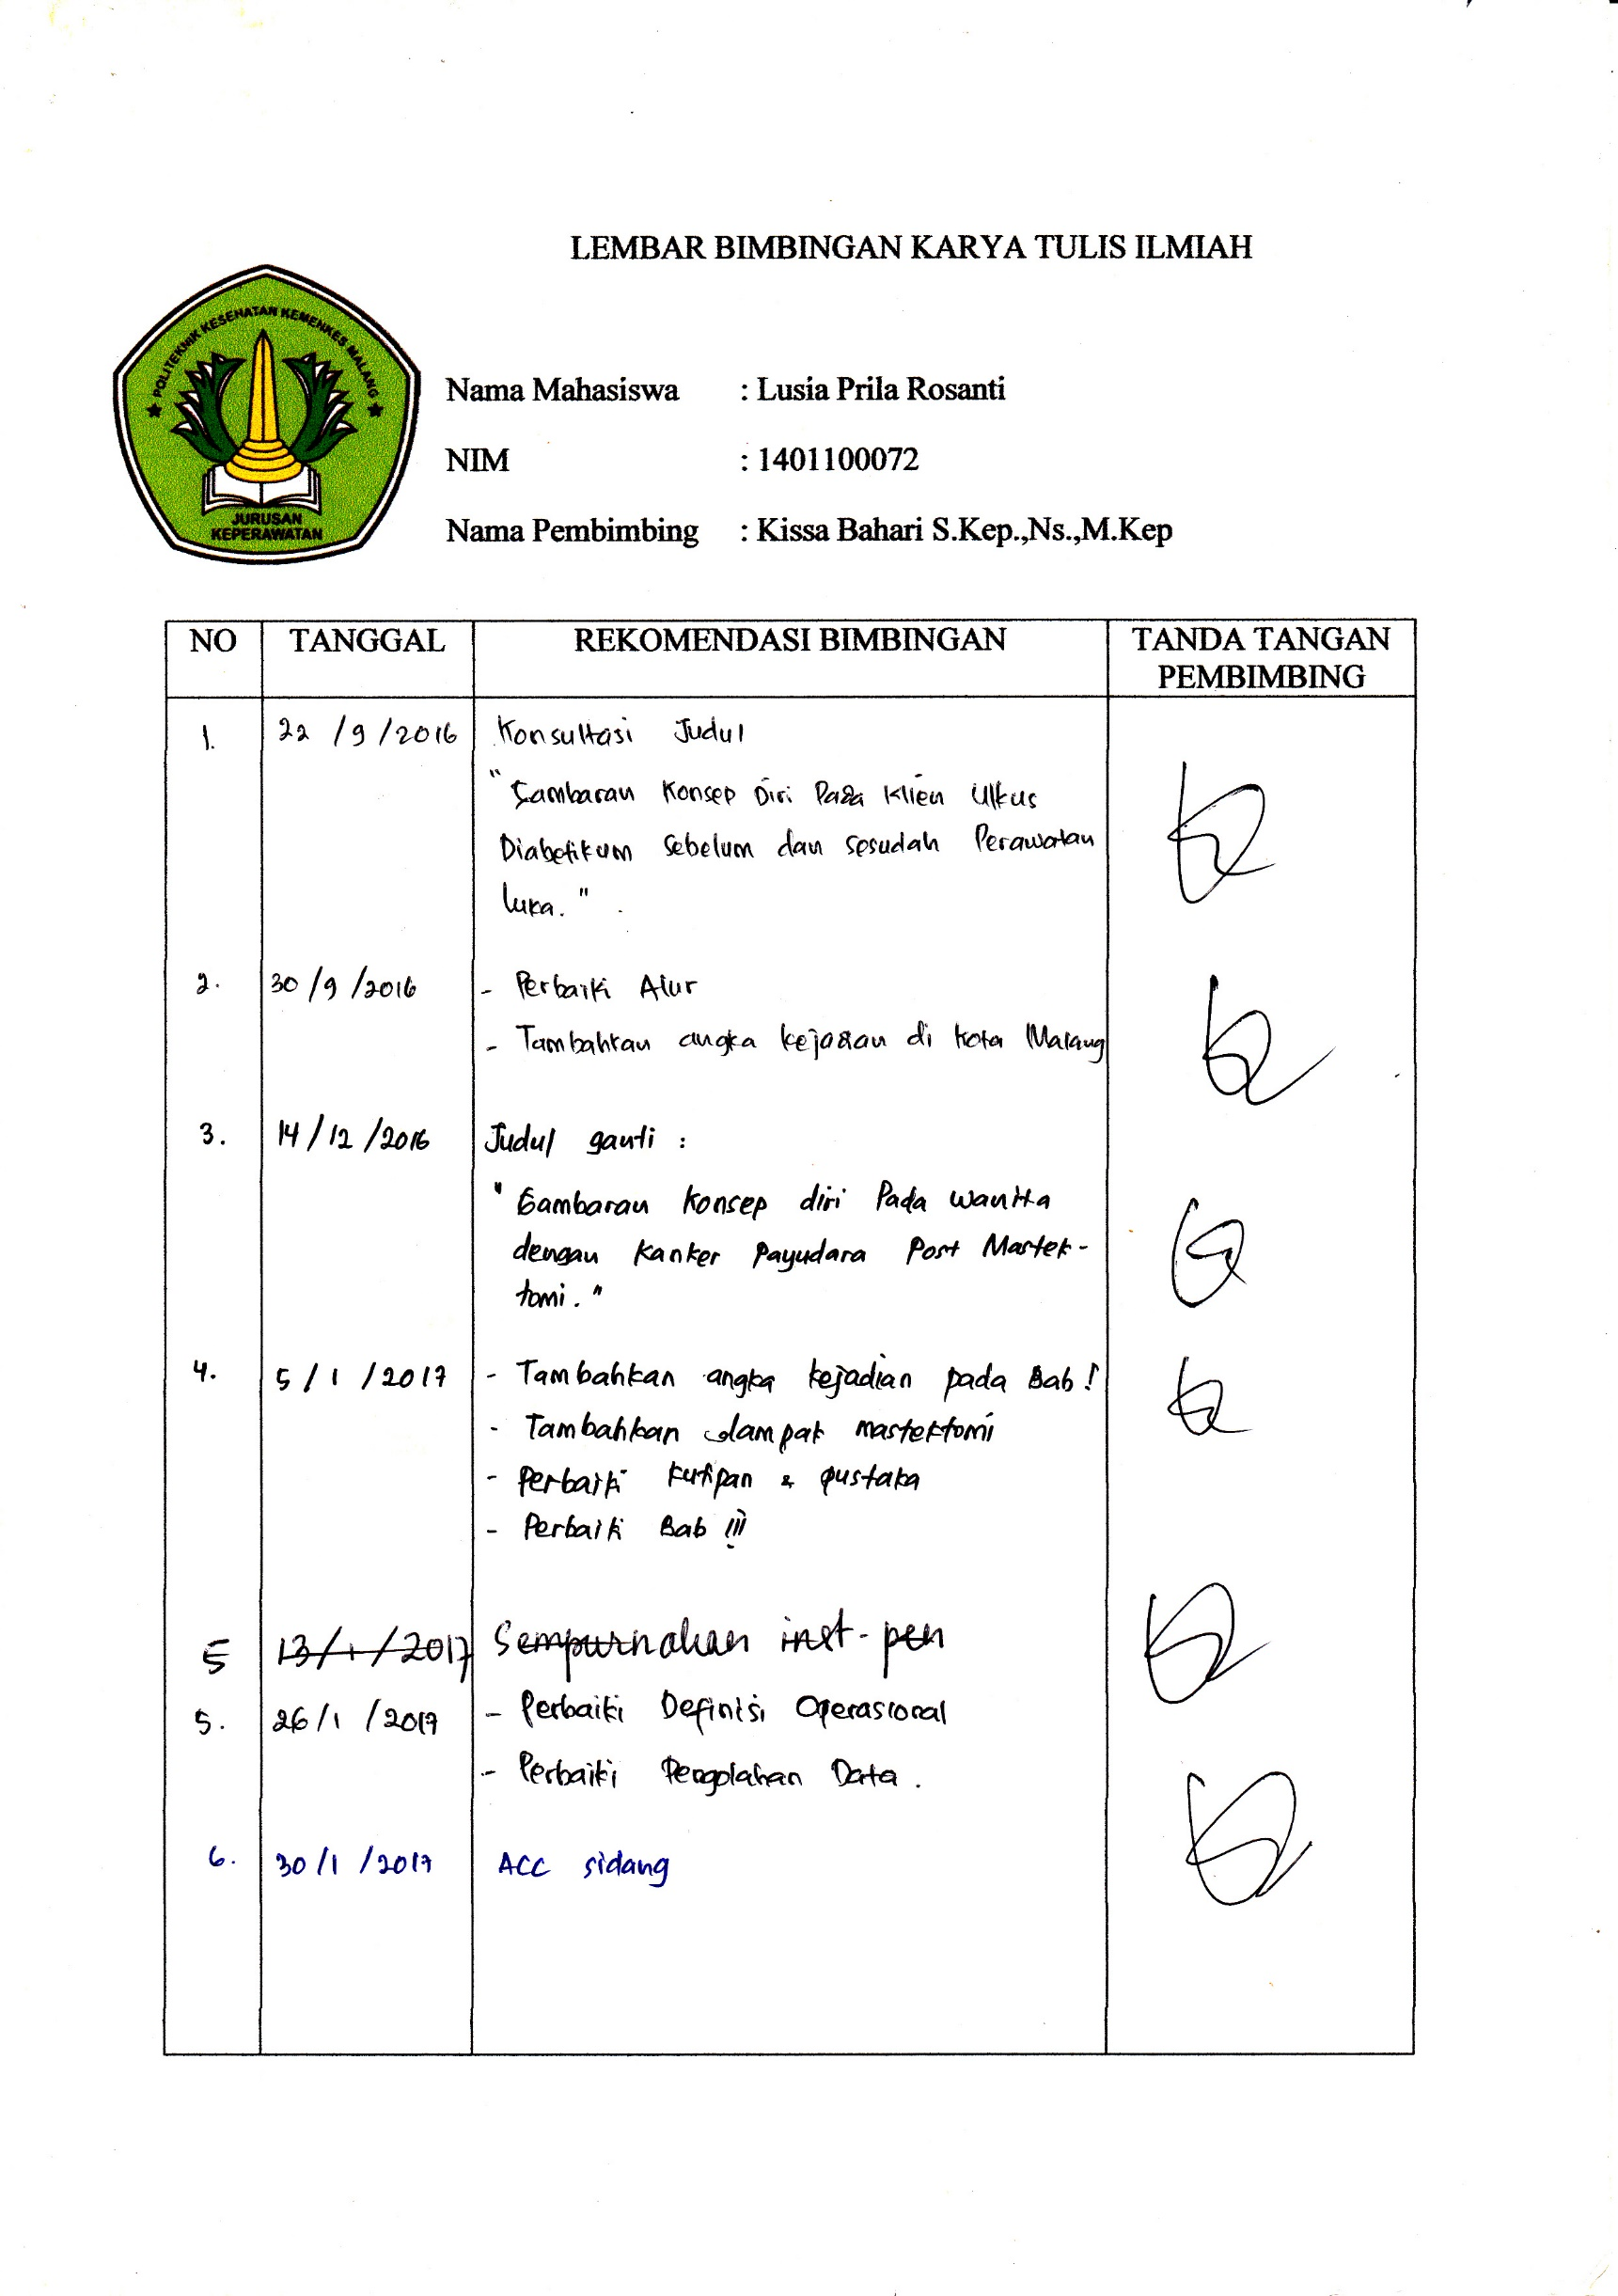 LEMBAR BIMBINGAN KARYA TULIS ILMIAH
POLITEKNIK KESEHATAN KEMENKES MALANG
JURUSAN
KEPERAWATAN
Nama Mahasiswa : Lusia Prila Rosanti
NIM : 1401100072
Nama Pembimbing : Kissa Bahari S.Kep.,Ns.,M.Kep
NO TANGGAL REKOMENDASI BIMBINGAN TANDA TANGAN
PEMBIMBING
1. 22/9/2016 Konsultasi Judul
"Gambaran Konsep Diri Pada Klien Ulkus
Diabetikum Sebelum dan sesudah Perawatan
luka."
2. 30/9/2016 - Perbaiki Alur
- Tambahkan angka kejadian di Kota Malang
3. 14/12/2016 Judul ganti :
"Gambaran Konsep diri Pada Wanita
dengan Kanker Payudara Post Mastek-
tomi."
4. 5/1/2017 - Tambahkan angka kejadian pada Bab I
- Tambahkan dampak mastektomi
- Perbaiki kutipan & pustaka
- Perbaiki Bab III
5 13/1/2017 Sempurnakan inst-pen
5. 26/1/2017 - Perbaiki Definisi Operasional
- Perbaiki Pengolahan Data.
6. 30/1/2017 ACC sidang